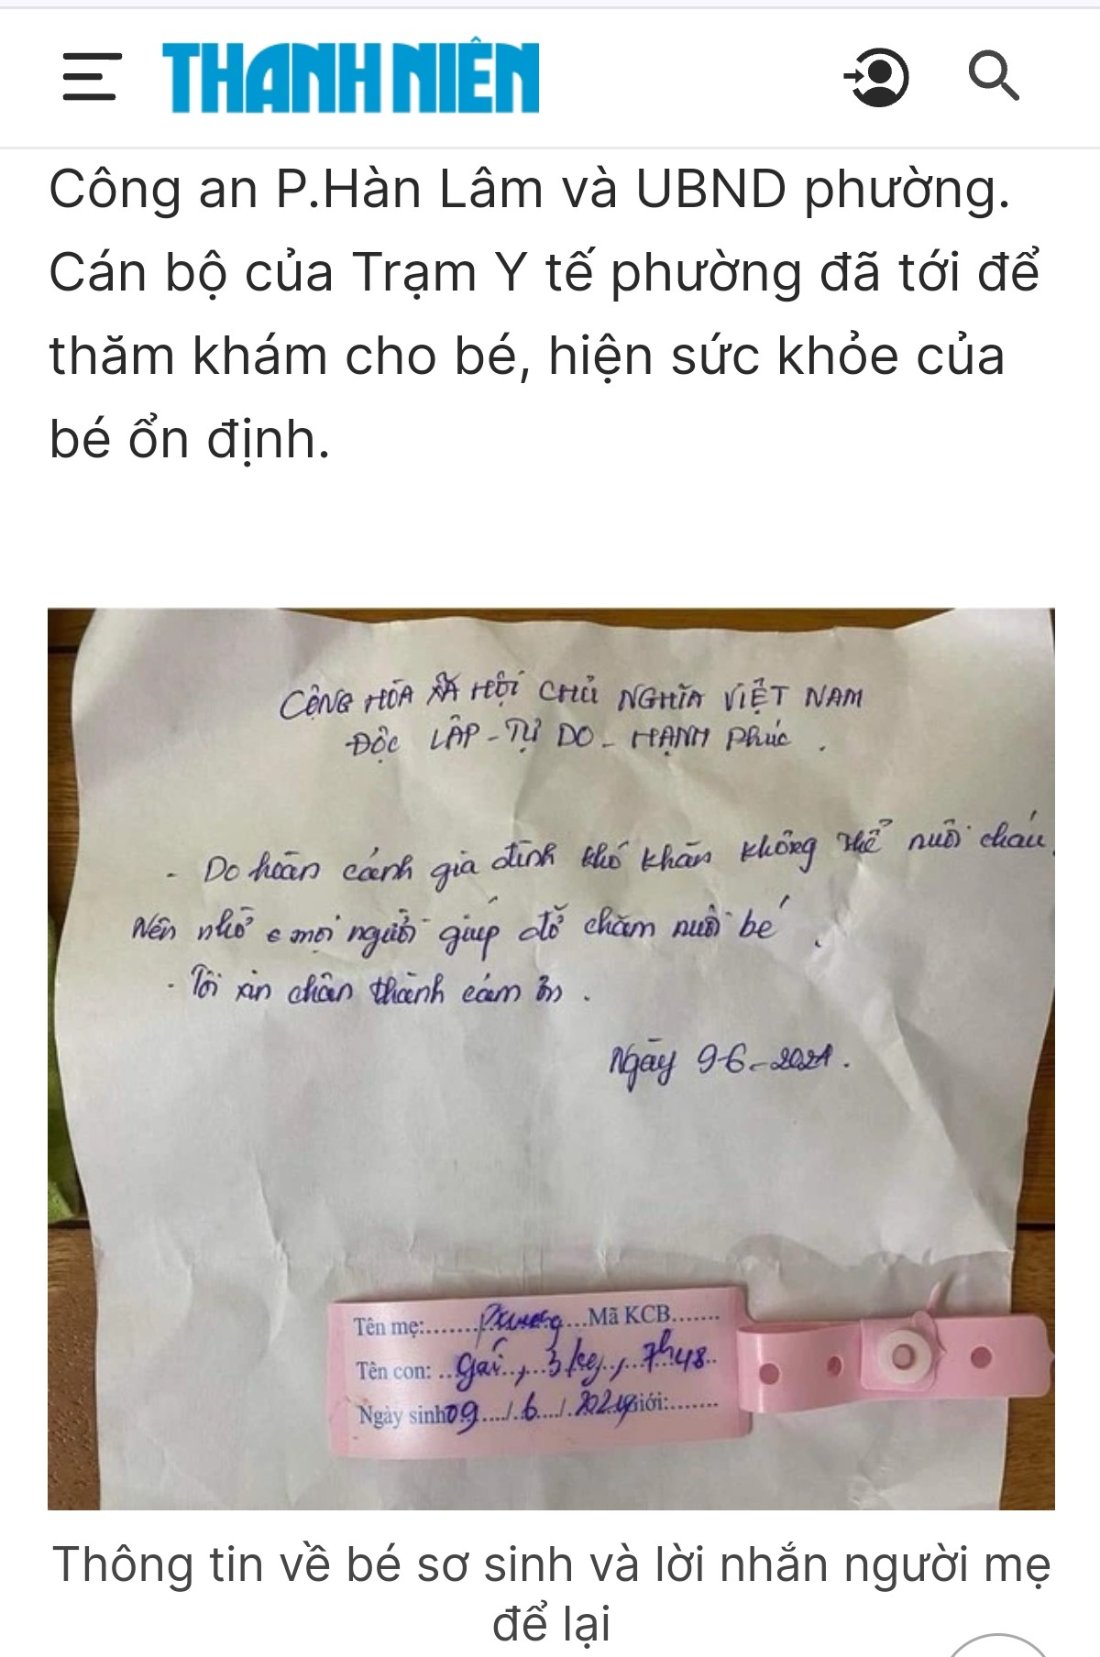 THANH NIÊN
Công an P.Hàn Lâm và UBND phường.
Cán bộ của Trạm Y tế phường đã tới để
thăm khám cho bé, hiện sức khỏe của
bé ổn định.
CỘNG HÒA XÃ HỘI CHỦ NGHĨA VIỆT NAM
ĐỘC LẬP - TỰ DO - HẠNH PHÚC.
- Do hoàn cảnh gia đình khó khăn không thể nuôi cháu.
Nên nhờ mọi người giúp đỡ chăm nuôi bé.
- Tôi xin chân thành cám ơn.
Ngày 9-6-2021.
Tên mẹ:....... Phương...Mã KCB.......
Tên con: ..Gái..,...3kg..,...7h48..
Ngày sinh09..../..6..../.2024Giới:.......
Thông tin về bé sơ sinh và lời nhắn người mẹ
để lại